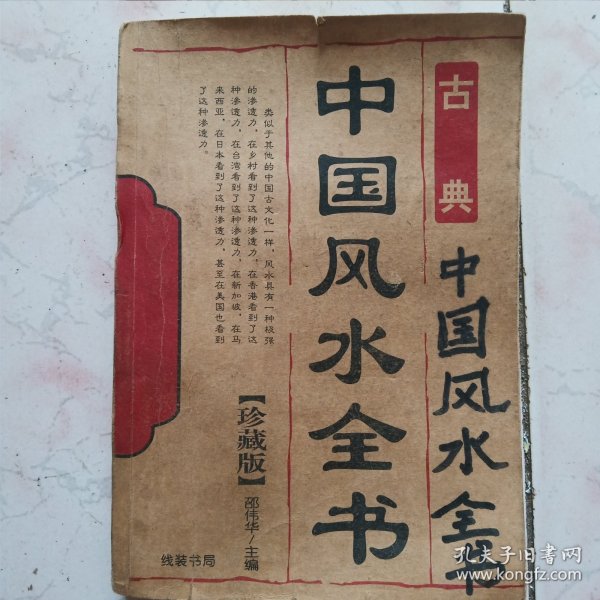 古典
中国风水全书
中国风水全书
类似于其他的中国古文化一样，风水具有一种极强
的渗透力，在乡村看到了这种渗透力，在香港看到了这
种渗透力，在台湾看到了这种渗透力，在新加坡，在马
来西亚，在日本看到了这种渗透力，甚至在美国也看到
了这种渗透力。
【珍藏版】
邵伟华/主编
线装书局
孔夫子旧书网
www.kongfz.com